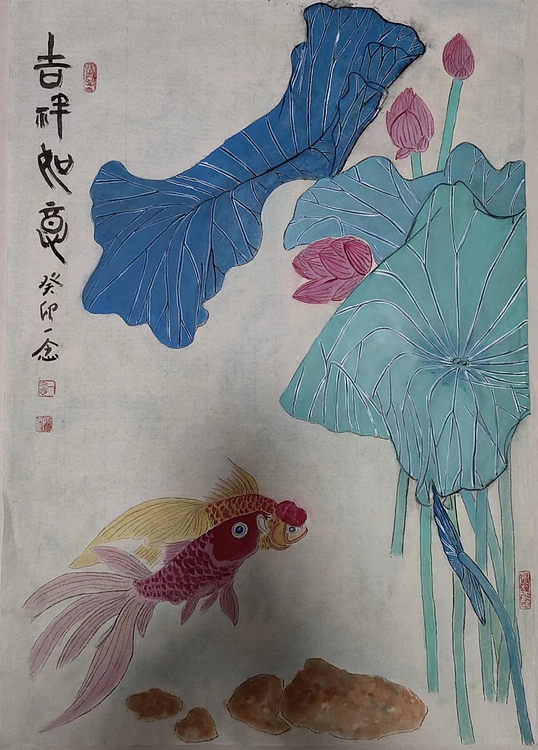 吉祥如意
癸卯一念